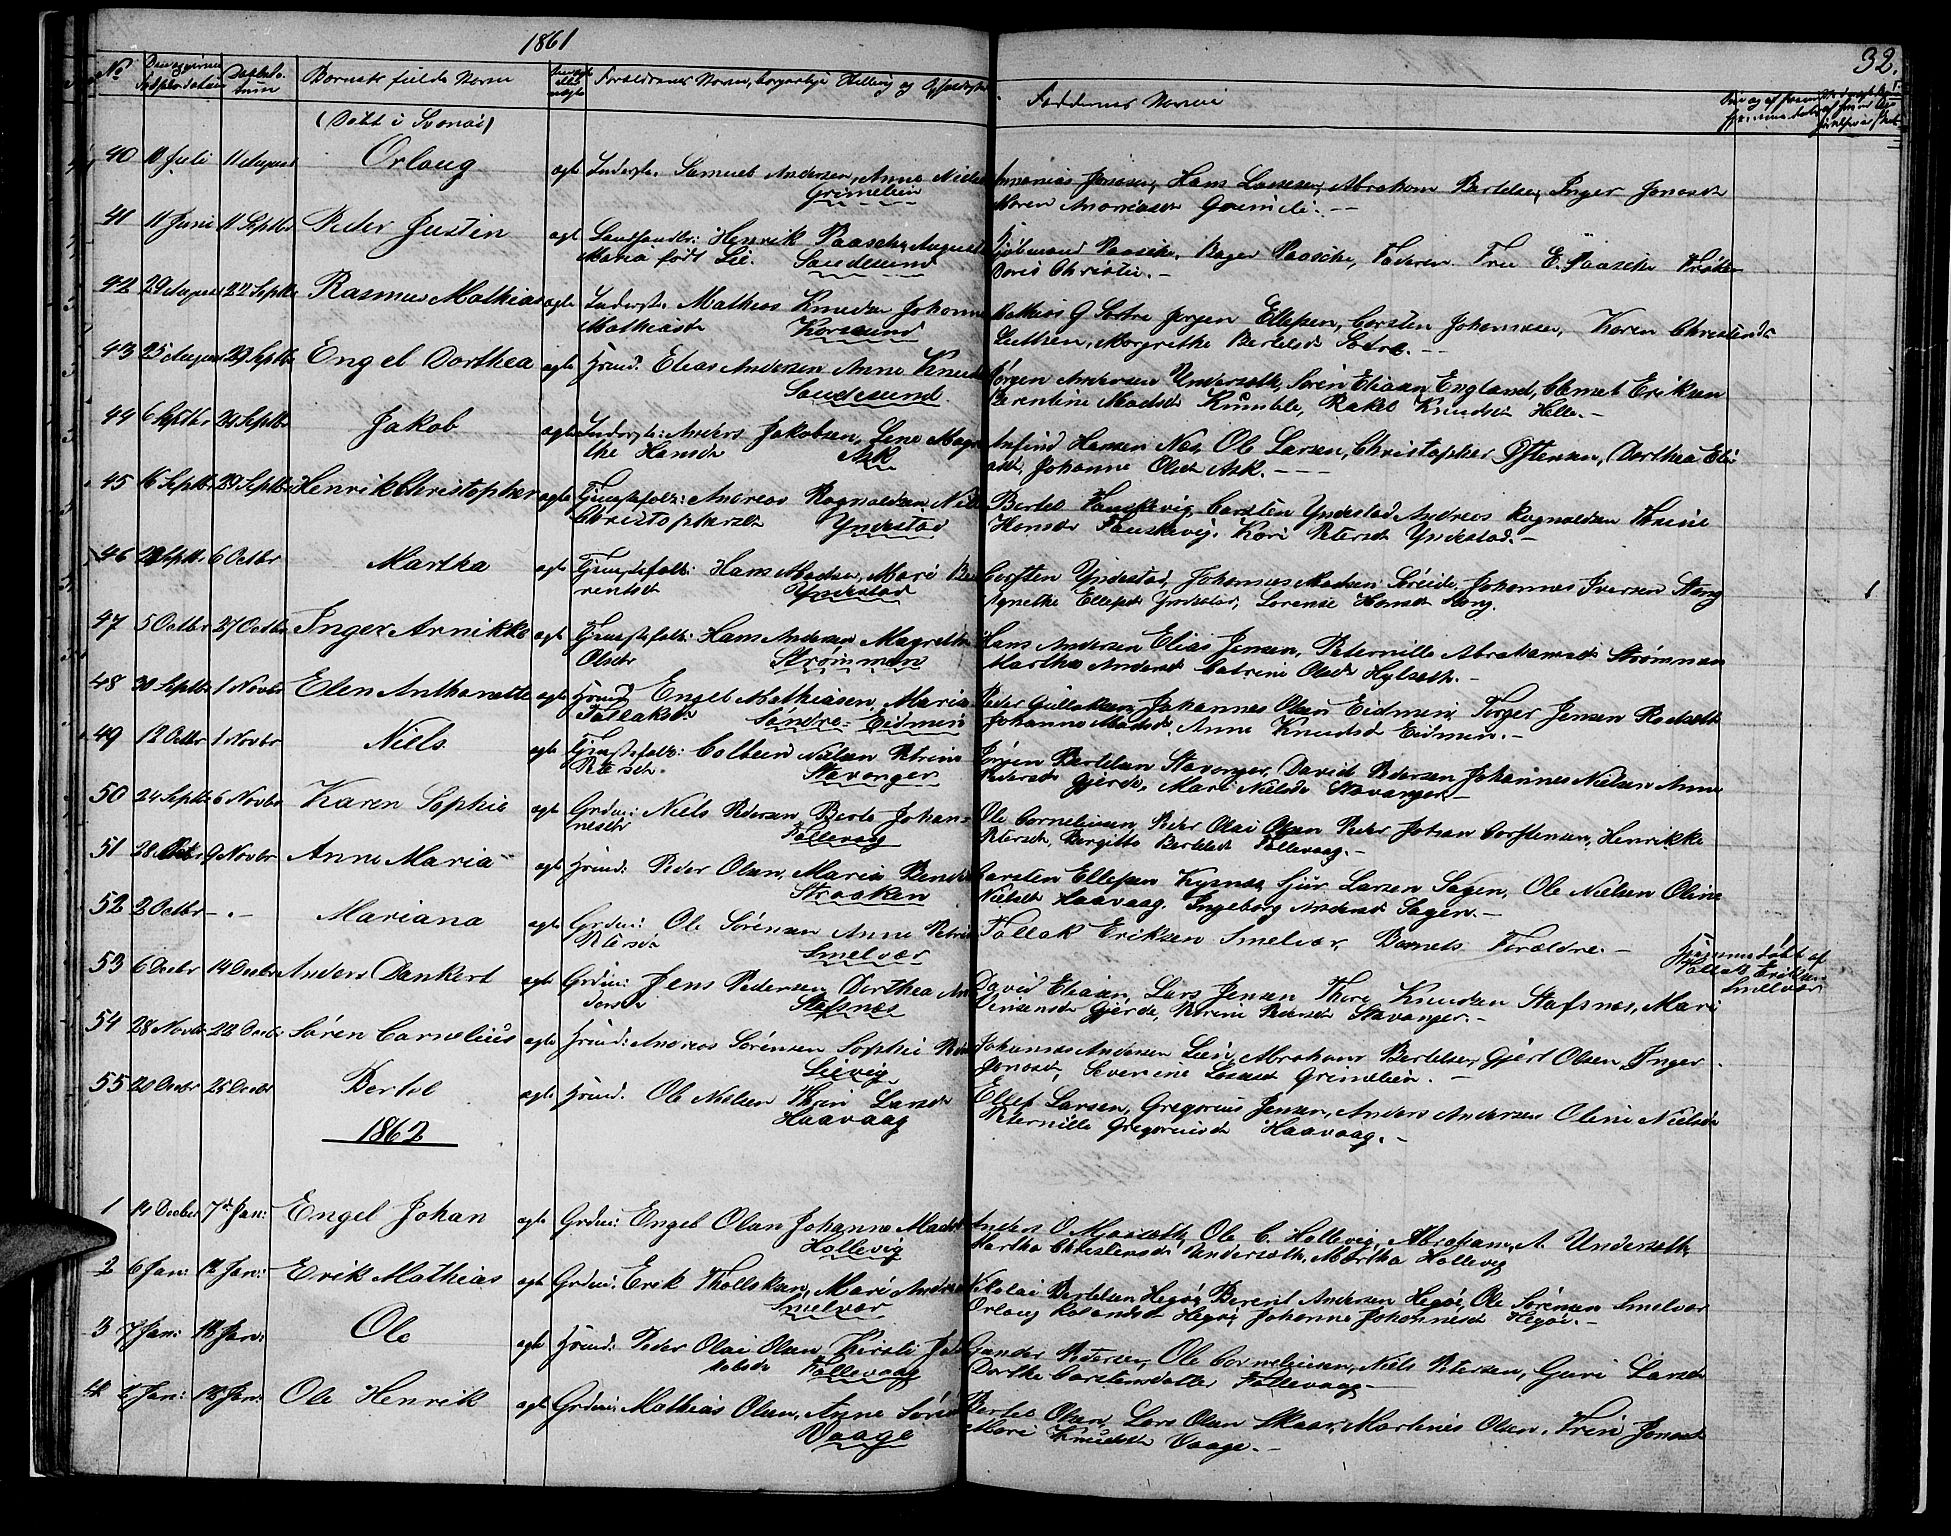 1861
32.
No
Daabsda-
tum
Barnets fulde Navn
Forældrenes Navn, borgerlige Stilling og Opholdssted
Faddernes Navne
(Døbt i Svanøi)
40 11 Juli 11 August Orloug ægte Inderst. Samuel Andersen, Anne Niels
Grimelien
Ananias Jonasen, Hans Lassesen, Abraham Bertelsen, Inger Jonasdt
Maren Ananiasdt Grimeli.
41 11 Juni 11 Septbr Peder Justin ægte Landhandlr: Henrik Paasche, Augusta
Maria født Lie. Sandesund
Kjøbmand Paasche, Roger Paasche, Faderen Fru E. Paasche Frøken
Doris Christie.
42 29 August 22 Septbr Rasmus Mathias ægte Inderst. Mathias Knudsen Johanne
Mathiasdt Korssund
Mathias G Sætre Jørgen Ellefsen, Carsten Johannesen, Karen Christensdt
Lutsen, Margrethe Bertelsdt Sætre.
43 25 August 29 Septbr Engel Dorthea ægte Huusd: Elias Andersen Anne Knudsdt
Sandesund
Jørgen Andersen Underseth, Søren Eliasen England, Clemet Eriksen
Berentine Madsdt Krumble, Rakel Knudsdt Helle.
44 6 Septbr 29 Septbr Jakob ægte Inderste: Anders Jakobsen, Lene Magre
the Hansdt Ask
Anfind Hansen Næs, Ole Larsen, Christopher Østensen, Dorthea Eli
asdt, Johanne Olsdt Ask.
45 16 Septbr 29 Septbr Henrik Christopher ægte Tjenestefolk: Andreas Rognaldsen Nille
Christophersdt Yndestad
Bertel Fauskevig, Carsten Yndestad, Andreas Rognaldsen Thrine
Hansdt Fauskevig, Kari Petersdt Yndestad.
46 Septbr 6 Octbr Martha ægte Tjenestefolk: Hans Madsen, Mari Be
rentsdt Yndestad
Carsten Yndestad, Johannes Madsen Søreide, Johannes Iversen Stong
Agnethe Ellefsdt Yndestad, Lorense Hansdt Stong.
47 5 Octbr 27 Octbr Inger Annikke ægte Tjenestefolk: Hans Andersen Magrethe
Olsdtr Strømmen
Hans Andersen Elias Jensen, Peternille Abrahamsdt Strømmen
Martha Andersdt Catrine Olsdt Hylseth.
48 30 Septbr 1 Novbr Elen Anthonette ægte Huusd. Engel Mathiasen, Maria
Tollaksdt Søndre-Eidmen
Peder Gullaksen, Johannes Olsen Eidmen, Torger Jensen Rodseth
Johanne Madsdt. Anne Knudsdt Eidmen.
49 12 Octbr 1 Novbr Niels ægte Tjenestefolk: Colbein Nielsen Petrine
Petersdt. Stavanger
Jørgen Bertelsen Stavanger, David Pedersen Johannes Nielsen Anne
Pedersdt Gjerde, Mari Nielsdt Stavanger.
50 24 Septbr 6 Novbr Karen Sophie ægte Grdm: Niels Pedersen, Berte Johan-
nesdt Follevaag
Ole Corneliusen, Peder Olai Olsen Peder Johan Carstensen, Henrikke
Petersdt, Birgitte Bertelsdt Follevaag.
51 28 9 Novbr Anne Maria ægte Huusd: Peder Olsen, Maria Bendi
Straaken
Carsten Ellefsen Kysnæs Sjur Larsen Sagen, Ole Nielsen Oline
Nielsdt Haavaag Ingeborg Andersdt Sagen.
52 2 Octbr - . - Mariana ægte Grdm: Ole Sørensen Anne Petri
Petersdt Smelvær
Tollak Eriksen Smelvær, Barnets Forældre. - Hjemmedøbt af
Tollak Eriksen
Smelvær
53 6 Decbr 14 Decbr Anders Dankert ægte Grdm: Jens Pedersen Dorthea An
dersdt Stafsnæs
David Eliasen, Lars Jensen Thore Knudsen Stafsnæs, Mari
Vinsensdt Gjerde, Petrine Pedersdt Stavanger.
54 28 Novbr 22 Decbr Søren Cornelius ægte Huusd: Andreas Sørensen Sophie
Leevig
Johannes Andersen Lien, Abraham Bertelsen, Gjert Olsen, Inger
Jonasdt, Severine Lassesdt Grimelien.
55 20 Decbr 25 Decbr Bertel ægte Huusd. Ole Nielsen Thrin Larsdt
Haavaag
Ellef Larsen, Gregorius Jensen, Anders Andersen Oline Nielsdt
Peternille Gregoriusdt Haavaag.
1862
1 14 Decber 7de Jan: Engel Johan ægte Grdm: Engel Olsen Johanne Madsdt
Hollevig
Anders O Mjaaseth, Ole C. Hollevig, Abraham A. Underseth
Martha Christensdt Underseth, Martha Hollevig
2 6 Jan: 12 Jan: Erik Mathias ægte Grdm: Erik Thollaksen, Mari Anders
Smelvær
Nikolai Bertelsen Hegøi, Berent Andersen Hegøi, Ole Sørensen Smelvær
Orloug Rolandsdt Hegøi, Johanne Johannesdt Hegøi.
3 7 Jan: 18 Jan: Ole ægte Huusd: Peder Olai Olsen, Kirsti Ja
kobsdt Follevaag
Gunder Pedersen, Ole Corneliusen, Niels Petersen, Guri Larsdt
Dorthe Carstensdatter Follevaag
4 Jan: 18 Jan: Ole Henrik ægte Grdm: Mathias Olsen, Anne Sørens
Vaage
Bertel Olsen, Lars Olsen Skaar, Martinus Olsen, Trin Jonasdt
Mari Knudsdt Vaage.